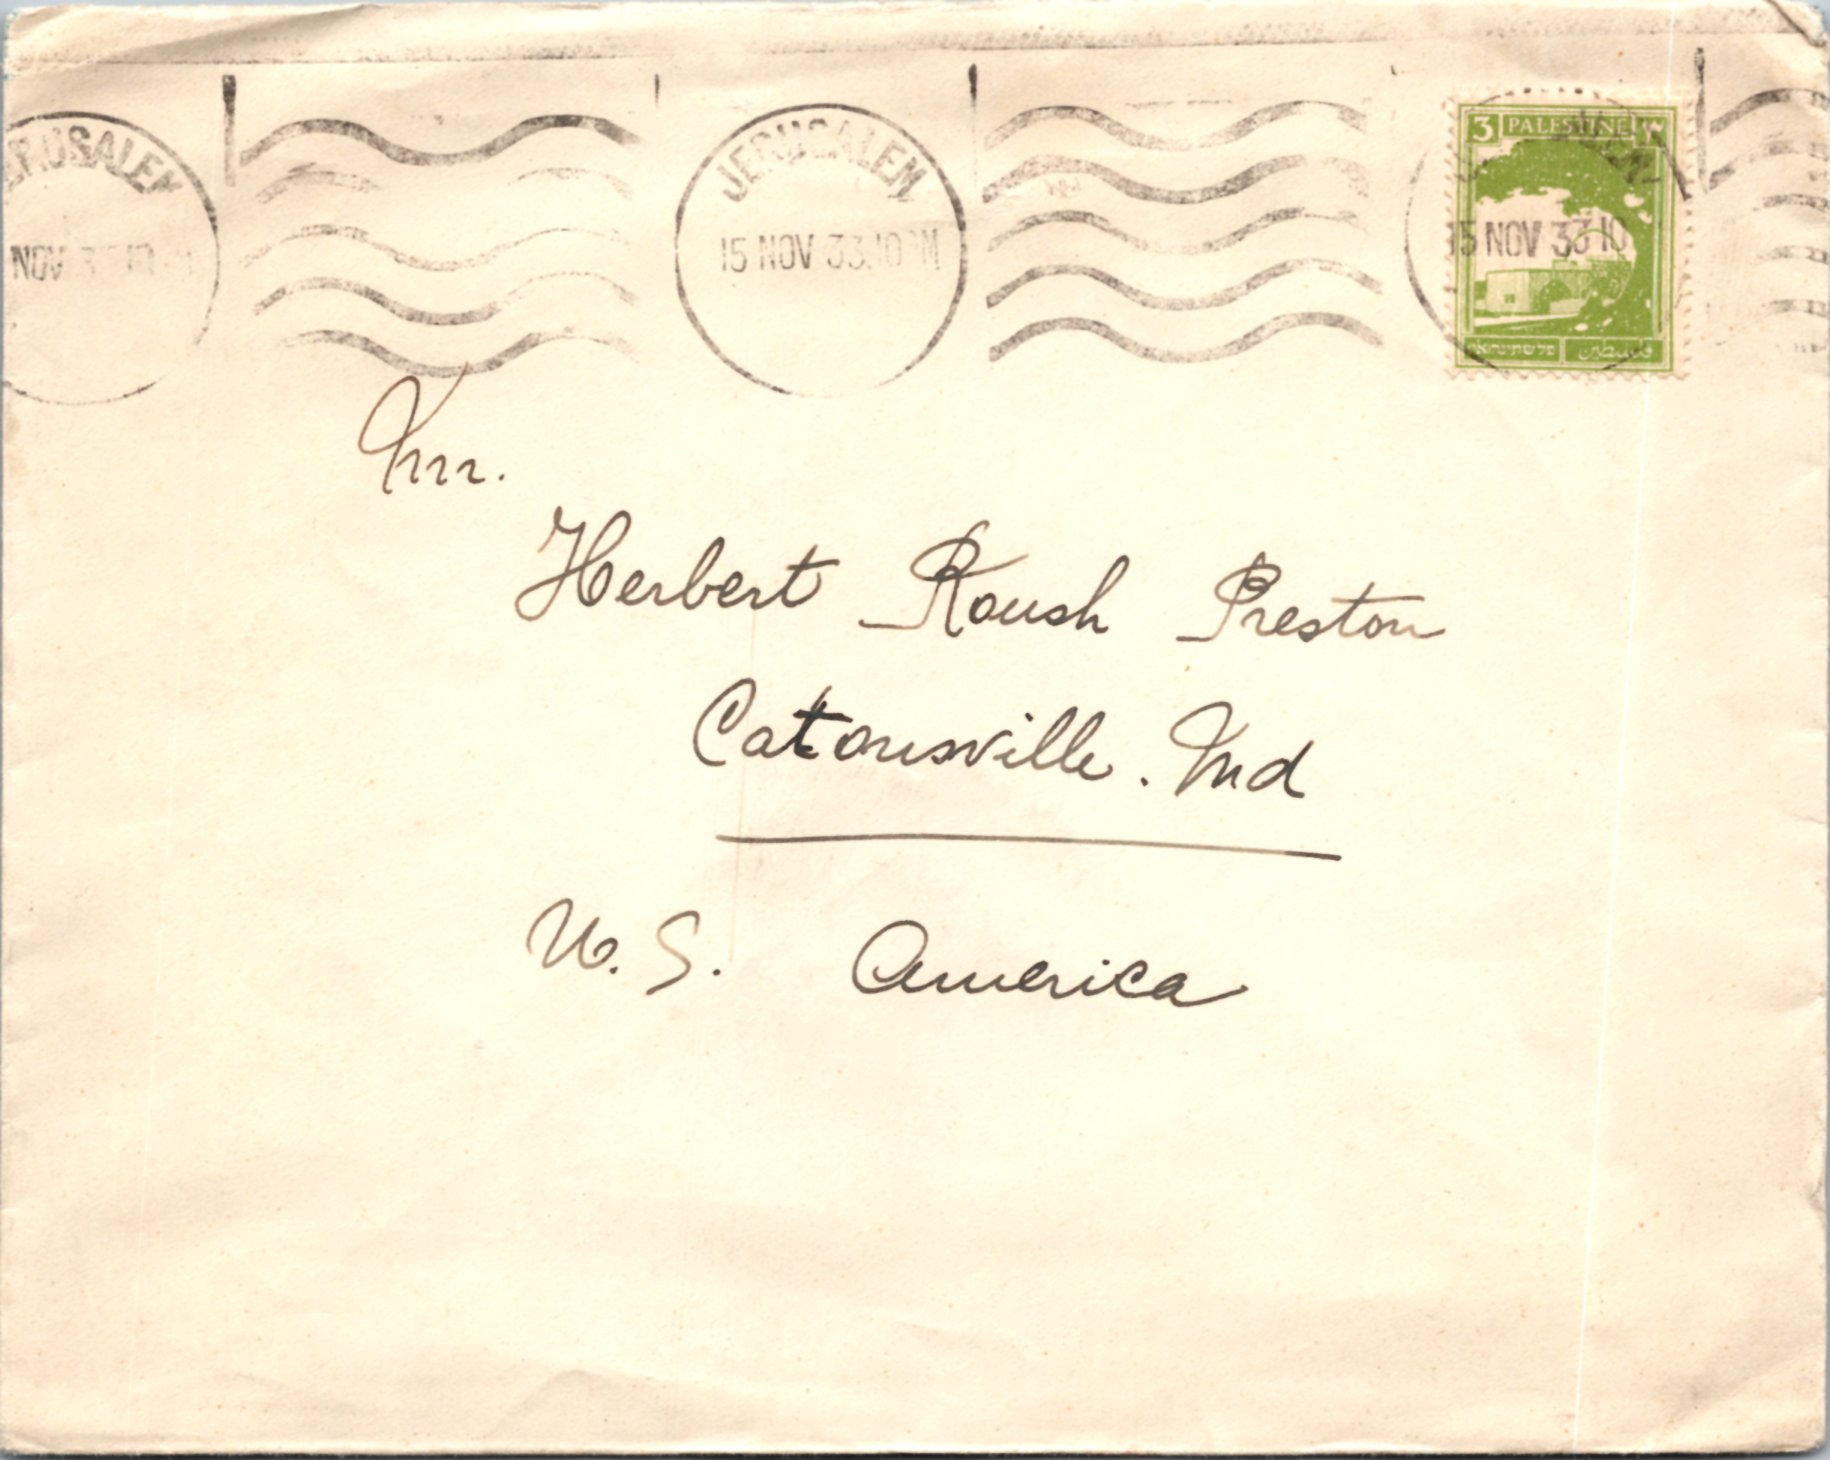 JERUSALEM
NOV
JERUSALEM
15 NOV 33.10 PM
3 PALESTINE ٣
15 NOV 33 10
פלשתינה א״י فلسطين
Mr.
Herbert Roush Preston
Catonsville. Md
U. S. America